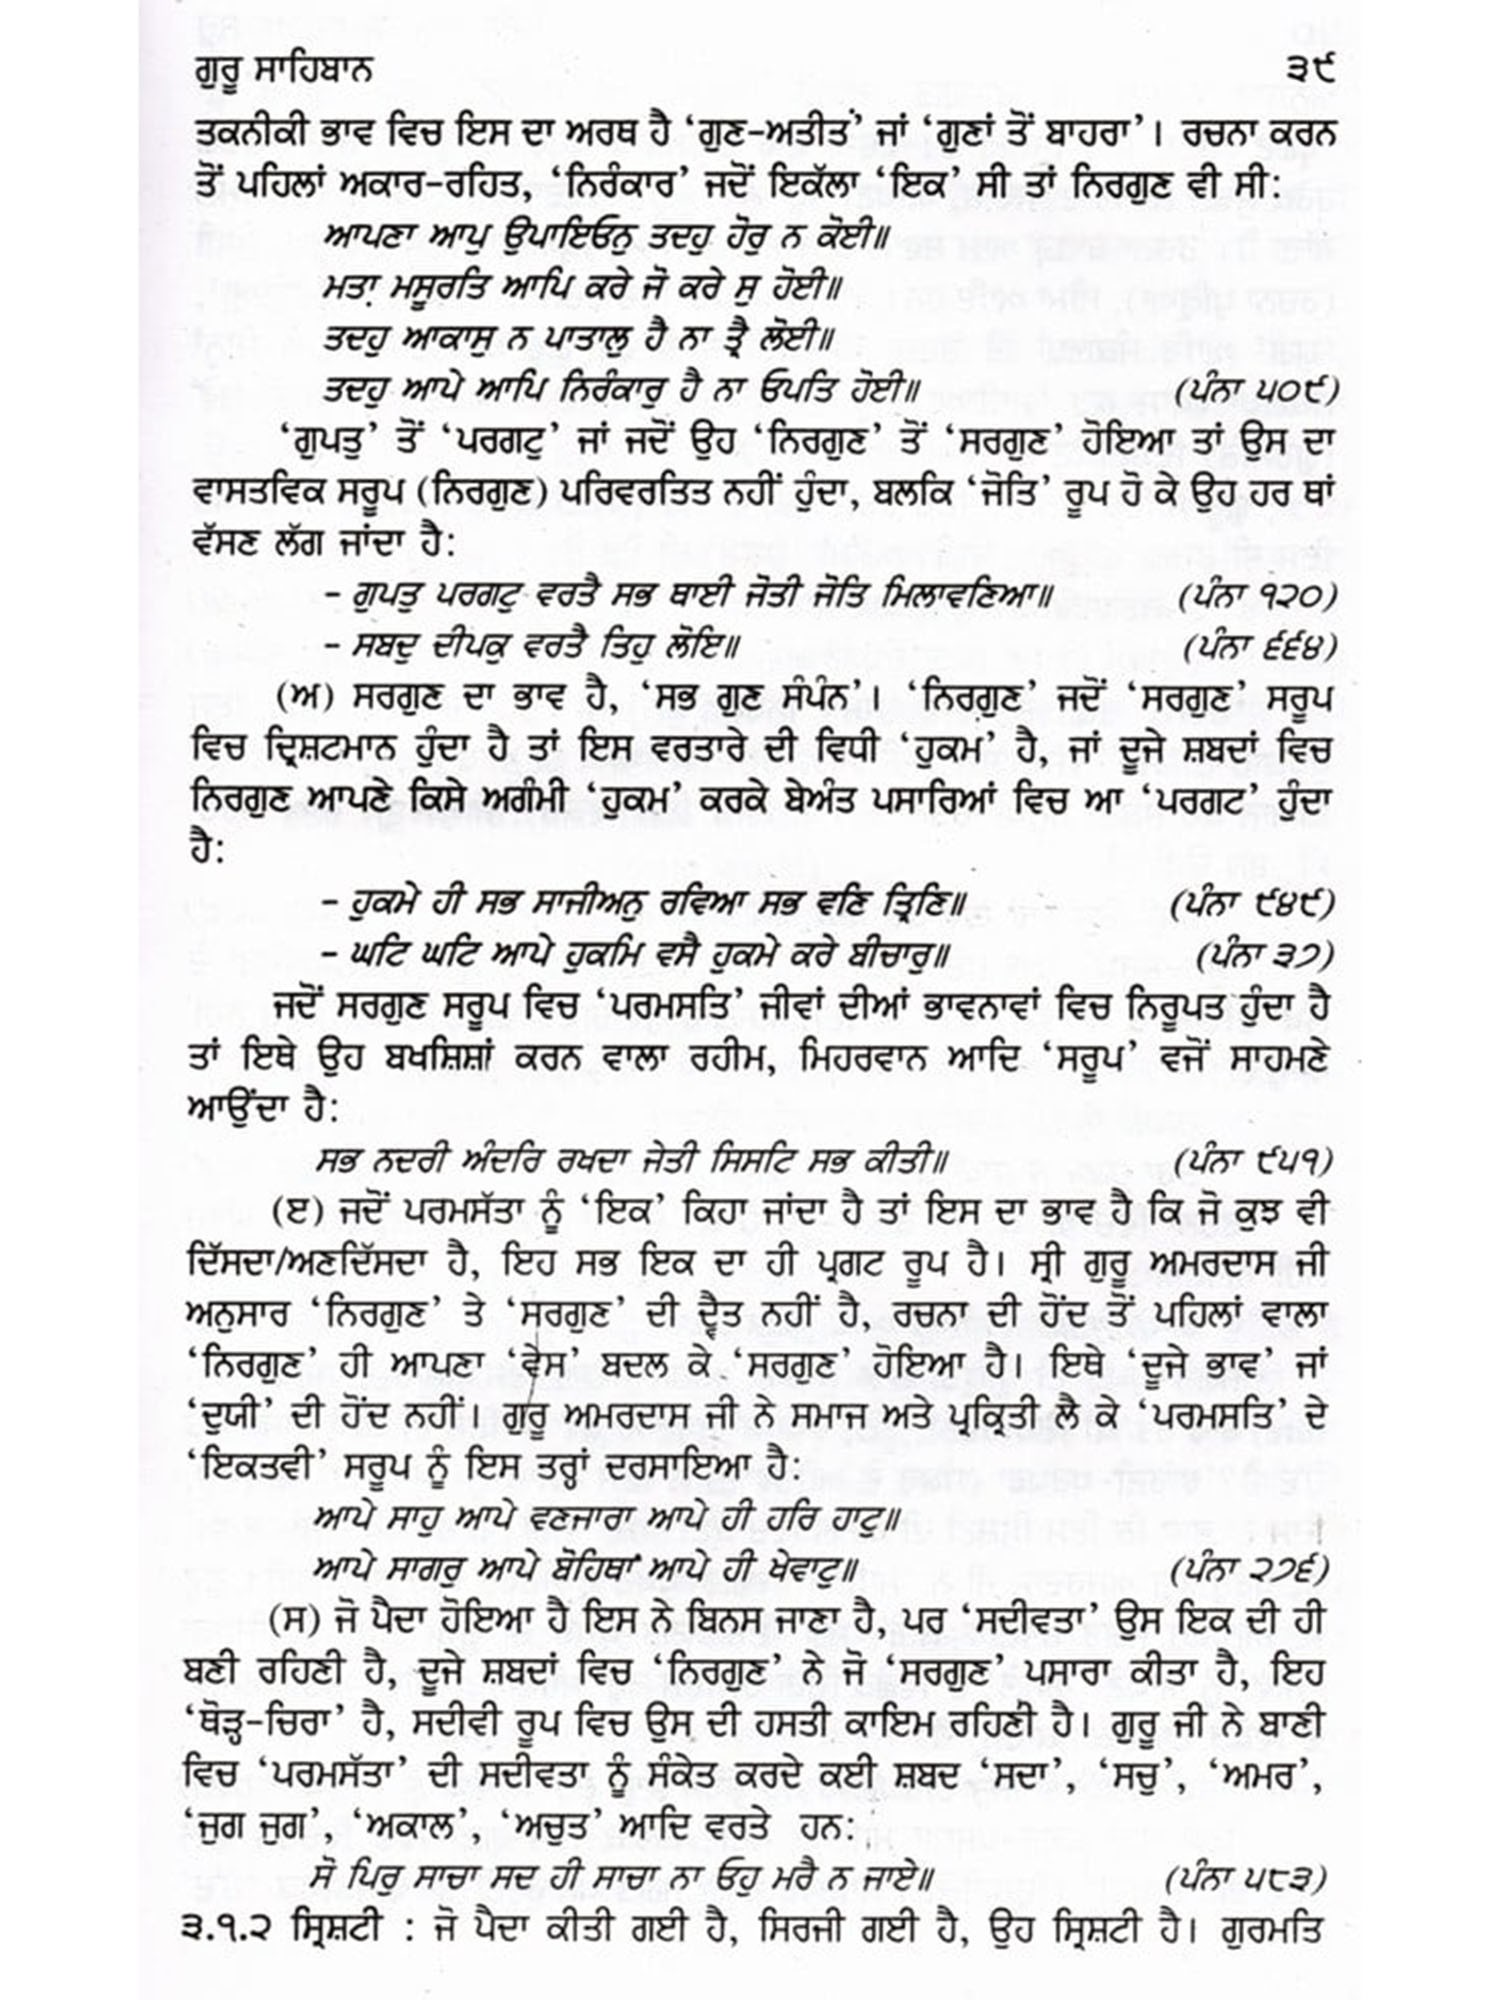 ਗੁਰੂ ਸਾਹਿਬਾਨ ੩੯
ਤਕਨੀਕੀ ਭਾਵ ਵਿਚ ਇਸ ਦਾ ਅਰਥ ਹੈ ‘ਗੁਣ-ਅਤੀਤ’ ਜਾਂ ‘ਗੁਣਾਂ ਤੋਂ ਬਾਹਰਾ’। ਰਚਨਾ ਕਰਨ
ਤੋਂ ਪਹਿਲਾਂ ਅਕਾਰ-ਰਹਿਤ, ‘ਨਿਰੰਕਾਰ’ ਜਦੋਂ ਇਕੱਲਾ ‘ਇਕ’ ਸੀ ਤਾਂ ਨਿਰਗੁਣ ਵੀ ਸੀ:
ਆਪਣਾ ਆਪੁ ਉਪਾਇਓਨੁ ਤਦਹੁ ਹੋਰੁ ਨ ਕੋਈ॥
ਮਤਾ ਮਸੂਰਤਿ ਆਪਿ ਕਰੇ ਜੋ ਕਰੇ ਸੁ ਹੋਈ॥
ਤਦਹੁ ਆਕਾਸੁ ਨ ਪਾਤਾਲੁ ਹੈ ਨਾ ਤ੍ਰੈ ਲੋਈ॥
ਤਦਹੁ ਆਪੇ ਆਪਿ ਨਿਰੰਕਾਰੁ ਹੈ ਨਾ ਓਪਤਿ ਹੋਈ॥ (ਪੰਨਾ ੫੦੯)
‘ਗੁਪਤੁ’ ਤੋਂ ‘ਪਰਗਟੁ’ ਜਾਂ ਜਦੋਂ ਉਹ ‘ਨਿਰਗੁਣ’ ਤੋਂ ‘ਸਰਗੁਣ’ ਹੋਇਆ ਤਾਂ ਉਸ ਦਾ
ਵਾਸਤਵਿਕ ਸਰੂਪ (ਨਿਰਗੁਣ) ਪਰਿਵਰਤਿਤ ਨਹੀਂ ਹੁੰਦਾ, ਬਲਕਿ ‘ਜੋਤਿ’ ਰੂਪ ਹੋ ਕੇ ਉਹ ਹਰ ਥਾਂ
ਵੱਸਣ ਲੱਗ ਜਾਂਦਾ ਹੈ:
- ਗੁਪਤੁ ਪਰਗਟੁ ਵਰਤੈ ਸਭ ਥਾਈ ਜੋਤੀ ਜੋਤਿ ਮਿਲਾਵਣਿਆ॥ (ਪੰਨਾ ੧੨੦)
- ਸਬਦੁ ਦੀਪਕੁ ਵਰਤੈ ਤਿਹੁ ਲੋਇ॥ (ਪੰਨਾ ੬੬੪)
(ਅ) ਸਰਗੁਣ ਦਾ ਭਾਵ ਹੈ, ‘ਸਭ ਗੁਣ ਸੰਪੰਨ’। ‘ਨਿਰਗੁਣ’ ਜਦੋਂ ‘ਸਰਗੁਣ’ ਸਰੂਪ
ਵਿਚ ਦ੍ਰਿਸ਼ਟਮਾਨ ਹੁੰਦਾ ਹੈ ਤਾਂ ਇਸ ਵਰਤਾਰੇ ਦੀ ਵਿਧੀ ‘ਹੁਕਮ’ ਹੈ, ਜਾਂ ਦੂਜੇ ਸ਼ਬਦਾਂ ਵਿਚ
ਨਿਰਗੁਣ ਆਪਣੇ ਕਿਸੇ ਅਗੰਮੀ ‘ਹੁਕਮ’ ਕਰਕੇ ਬੇਅੰਤ ਪਸਾਰਿਆਂ ਵਿਚ ਆ ‘ਪਰਗਟ’ ਹੁੰਦਾ
ਹੈ:
- ਹੁਕਮੇ ਹੀ ਸਭ ਸਾਜੀਅਨੁ ਰਵਿਆ ਸਭ ਵਣਿ ਤ੍ਰਿਣਿ॥ (ਪੰਨਾ ੯੪੯)
- ਘਟਿ ਘਟਿ ਆਪੇ ਹੁਕਮਿ ਵਸੈ ਹੁਕਮੇ ਕਰੇ ਬੀਚਾਰੁ॥ (ਪੰਨਾ ੩੭)
ਜਦੋਂ ਸਰਗੁਣ ਸਰੂਪ ਵਿਚ ‘ਪਰਮਸਤਿ’ ਜੀਵਾਂ ਦੀਆਂ ਭਾਵਨਾਵਾਂ ਵਿਚ ਨਿਰੂਪਤ ਹੁੰਦਾ ਹੈ
ਤਾਂ ਇਥੇ ਉਹ ਬਖਸ਼ਿਸ਼ਾਂ ਕਰਨ ਵਾਲਾ ਰਹੀਮ, ਮਿਹਰਵਾਨ ਆਦਿ ‘ਸਰੂਪ’ ਵਜੋਂ ਸਾਹਮਣੇ
ਆਉਂਦਾ ਹੈ:
ਸਭ ਨਦਰੀ ਅੰਦਰਿ ਰਖਦਾ ਜੇਤੀ ਸਿਸਟਿ ਸਭ ਕੀਤੀ॥ (ਪੰਨਾ ੯੫੧)
(ੲ) ਜਦੋਂ ਪਰਮਸੱਤਾ ਨੂੰ ‘ਇਕ’ ਕਿਹਾ ਜਾਂਦਾ ਹੈ ਤਾਂ ਇਸ ਦਾ ਭਾਵ ਹੈ ਕਿ ਜੋ ਕੁਝ ਵੀ
ਦਿੱਸਦਾ/ਅਣਦਿੱਸਦਾ ਹੈ, ਇਹ ਸਭ ਇਕ ਦਾ ਹੀ ਪ੍ਰਗਟ ਰੂਪ ਹੈ। ਸ੍ਰੀ ਗੁਰੂ ਅਮਰਦਾਸ ਜੀ
ਅਨੁਸਾਰ ‘ਨਿਰਗੁਣ’ ਤੇ ‘ਸਰਗੁਣ’ ਦੀ ਦ੍ਵੈਤ ਨਹੀਂ ਹੈ, ਰਚਨਾ ਦੀ ਹੋਂਦ ਤੋਂ ਪਹਿਲਾਂ ਵਾਲਾ
‘ਨਿਰਗੁਣ’ ਹੀ ਆਪਣਾ ‘ਵੇਸ’ ਬਦਲ ਕੇ ‘ਸਰਗੁਣ’ ਹੋਇਆ ਹੈ। ਇਥੇ ‘ਦੂਜੇ ਭਾਵ’ ਜਾਂ
‘ਦੁਯੀ’ ਦੀ ਹੋਂਦ ਨਹੀਂ। ਗੁਰੂ ਅਮਰਦਾਸ ਜੀ ਨੇ ਸਮਾਜ ਅਤੇ ਪ੍ਰਕ੍ਰਿਤੀ ਲੈ ਕੇ ‘ਪਰਮਸਤਿ’ ਦੇ
‘ਇਕਤਵੀ’ ਸਰੂਪ ਨੂੰ ਇਸ ਤਰ੍ਹਾਂ ਦਰਸਾਇਆ ਹੈ:
ਆਪੇ ਸਾਹੁ ਆਪੇ ਵਣਜਾਰਾ ਆਪੇ ਹੀ ਹਰਿ ਹਾਟੁ॥
ਆਪੇ ਸਾਗਰੁ ਆਪੇ ਬੋਹਿਥਾ ਆਪੇ ਹੀ ਖੇਵਾਟੁ॥ (ਪੰਨਾ ੨੭੬)
(ਸ) ਜੋ ਪੈਦਾ ਹੋਇਆ ਹੈ ਇਸ ਨੇ ਬਿਨਸ ਜਾਣਾ ਹੈ, ਪਰ ‘ਸਦੀਵਤਾ’ ਉਸ ਇਕ ਦੀ ਹੀ
ਬਣੀ ਰਹਿਣੀ ਹੈ, ਦੂਜੇ ਸ਼ਬਦਾਂ ਵਿਚ ‘ਨਿਰਗੁਣ’ ਨੇ ਜੋ ‘ਸਰਗੁਣ’ ਪਸਾਰਾ ਕੀਤਾ ਹੈ, ਇਹ
‘ਥੋੜ੍ਹ-ਚਿਰਾ’ ਹੈ, ਸਦੀਵੀ ਰੂਪ ਵਿਚ ਉਸ ਦੀ ਹਸਤੀ ਕਾਇਮ ਰਹਿਣੀ ਹੈ। ਗੁਰੂ ਜੀ ਨੇ ਬਾਣੀ
ਵਿਚ ‘ਪਰਮਸੱਤਾ’ ਦੀ ਸਦੀਵਤਾ ਨੂੰ ਸੰਕੇਤ ਕਰਦੇ ਕਈ ਸ਼ਬਦ ‘ਸਦਾ’, ‘ਸਚੁ’, ‘ਅਮਰ’,
‘ਜੁਗ ਜੁਗ’, ‘ਅਕਾਲ’, ‘ਅਚੁਤ’ ਆਦਿ ਵਰਤੇ ਹਨ:
ਸੋ ਪਿਰੁ ਸਾਚਾ ਸਦ ਹੀ ਸਾਚਾ ਨਾ ਓਹੁ ਮਰੈ ਨ ਜਾਏ॥ (ਪੰਨਾ ੫੮੩)
੩.੧.੨ ਸ੍ਰਿਸ਼ਟੀ : ਜੋ ਪੈਦਾ ਕੀਤੀ ਗਈ ਹੈ, ਸਿਰਜੀ ਗਈ ਹੈ, ਉਹ ਸ੍ਰਿਸ਼ਟੀ ਹੈ। ਗੁਰਮਤਿ